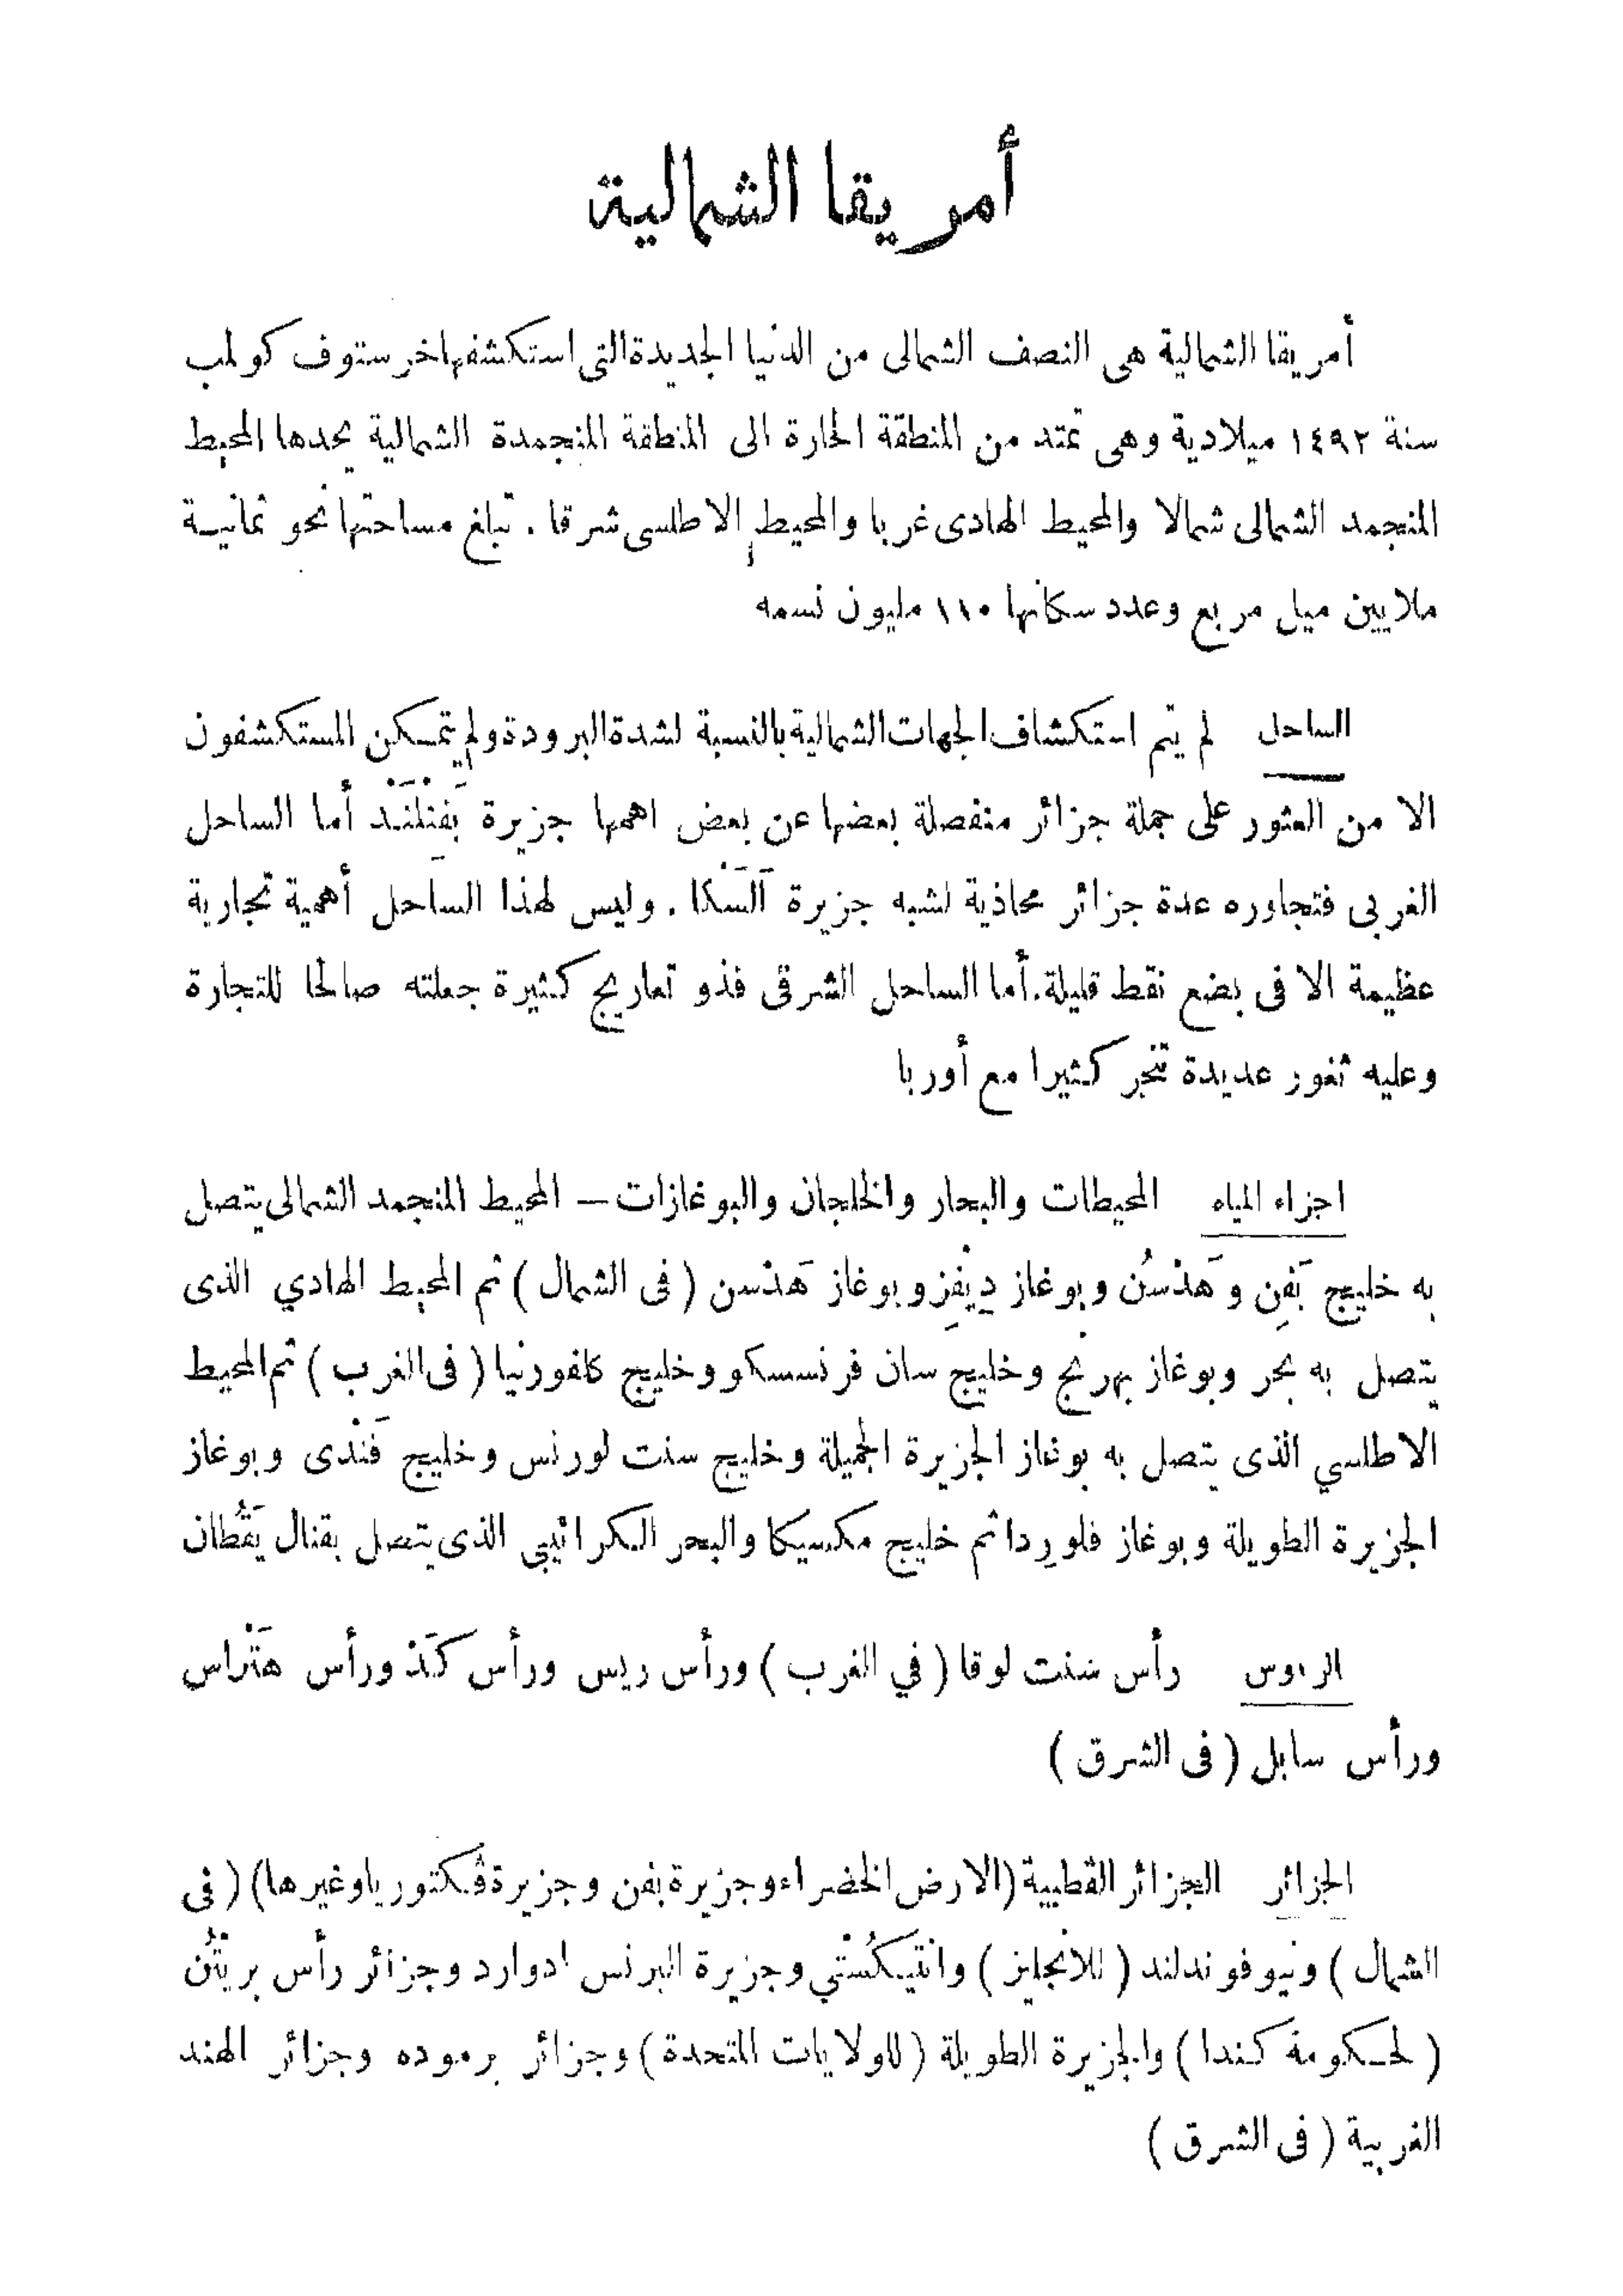 أمريقا الشمالية
أمريقا الشمالية هى النصف الشمالى من الدنيا الجديدة التى استكشفها خرستوف كولمب
سنة ١٤٩٢ ميلادية وهى تمتد من المنطقة الحارة الى المنطقة المنجمدة الشمالية يحدها المحيط
المنجمد الشمالى شمالا والمحيط الهادى غربا والمحيط الاطلسى شرقا . تبلغ مساحتها نحو ثمانية
ملايين ميل مربع وعدد سكانها ١١٠ مليون نسمه
الساحل لم يتم استكشاف الجهات الشمالية بالنسبة لشدة البرودة ولم يتمكن المستكشفون
الا من العثور على جملة جزائر منفصلة بعضها عن بعض اهمها جزيرة بَفِنْلَنْد أما الساحل
الغربى فتجاوره عدة جزائر محاذية لشبه جزيرة آلَسْكا . وليس لهذا الساحل أهمية تجارية
عظيمة الا فى بضع نقط قليلة . أما الساحل الشرقى فذو تعاريج كثيرة جعلته صالحا للتجارة
وعليه ثغور عديدة تتجر كثيرا مع أوربا
اجزاء المياه المحيطات والبحار والخلجان والبوغازات — المحيط المنجمد الشمالى يتصل
به خليج بَفِن و هَدْسُن وبوغاز دِيْفِز وبوغاز هَدْسن ( فى الشمال ) ثم المحيط الهادي الذى
يتصل به بحر وبوغاز بهرِنْج وخليج سان فرنسسكو وخليج كلفورنيا ( فى الغرب ) ثم المحيط
الاطلسي الذى يتصل به بوغاز الجزيرة الجميلة وخليج سنت لورنس وخليج فَنْدى وبوغاز
الجزيرة الطويلة وبوغاز فلورِدا ثم خليج مكسيكا والبحر الكرائيبي الذى يتصل بقنال يَقُطان
الرءوس رأس سنت لوقا ( في الغرب ) ورأس ريس ورأس كَدْ ورأس هَتْراس
ورأس سابل ( فى الشرق )
الجزائر الجزائر القطبية ( الارض الخضراء وجزيرة بفن وجزيرة ڤكتوريا وغيرها ) ( فى
الشمال ) ونيوفوندلند ( للانجليز ) وانتيكُسْتي وجزيرة البرنس ادوارد وجزائر رأس بريتُن
( لحكومة كندا ) والجزيرة الطويلة ( للولايات المتحدة ) وجزائر برموده وجزائر الهند
الغربية ( فى الشرق )